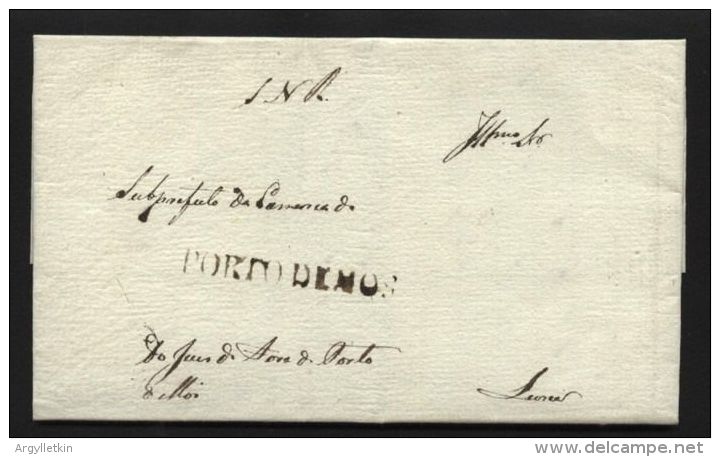 S N R.
Illmo Sr.
Subprefeito da Comarca de
PORTO DE MOS
Do Juis de Fora de Porto
de Mos
Leiria
Argylletkin
www.delcampe.net